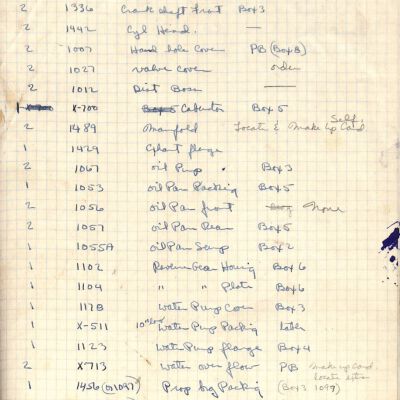 2 1336 Crank shaft Frot Box 3
2 1942 Cyl Head. —
2 1007 Hand hole Cover PB (Box B)
2 1027 valve cover order
2 1012 Dist Base —
1 X-700 Box 5
2 1489 Manfold Locate & Make up Card Self.
1 1429 flange
2 1067 oil Pump Box 3
1 1053 oil Pan Packing Box 5
2 1056 oil Pan front None
2 1057 oil Pan Rear Box 5
1 1055A oil Pan Sump Box 2
1 1102 Reverse Gear Housing Box 6
1 1104 " " Plate Box 6
1 117B Water Pump Cover Box 3
1 X-511 Water Pump Packing later
1 1123 Water Pump flange Box 4
2 X-713 Water over flow PB Make up Card.
1 1456 (or 1097) Prop Packing (Box 3 1097)